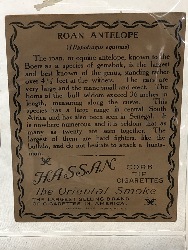 ROAN ANTELOPE
(Hippotragus equinus)
The roan, or equine antelope, known to the
Boers as a species of gemsbok, is the largest
and best known of the genus, standing rather
over 4½ feet at the withers. The ears are
very large and the mane small and erect. The
horns of the bull seldom exceed 30 inches in
length, measuring along the curve. This
species has a large range in central South
Africa and has also been seen at Senegal. It
is nowhere numerous and it is seldom that as
many as twenty are seen together. The
largest of them are hard fighters, like the
Buffalo, and do not hesitate to attack a hunts-
man.
HASSAN
CORK
TIP
CIGARETTES
The Oriental Smoke
THE LARGEST SELLING BRAND
OF CIGARETTES IN AMERICA.